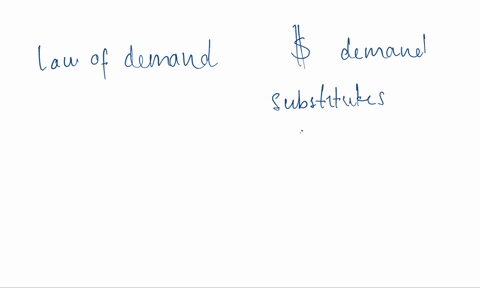 law of demand $ demand
substitutes